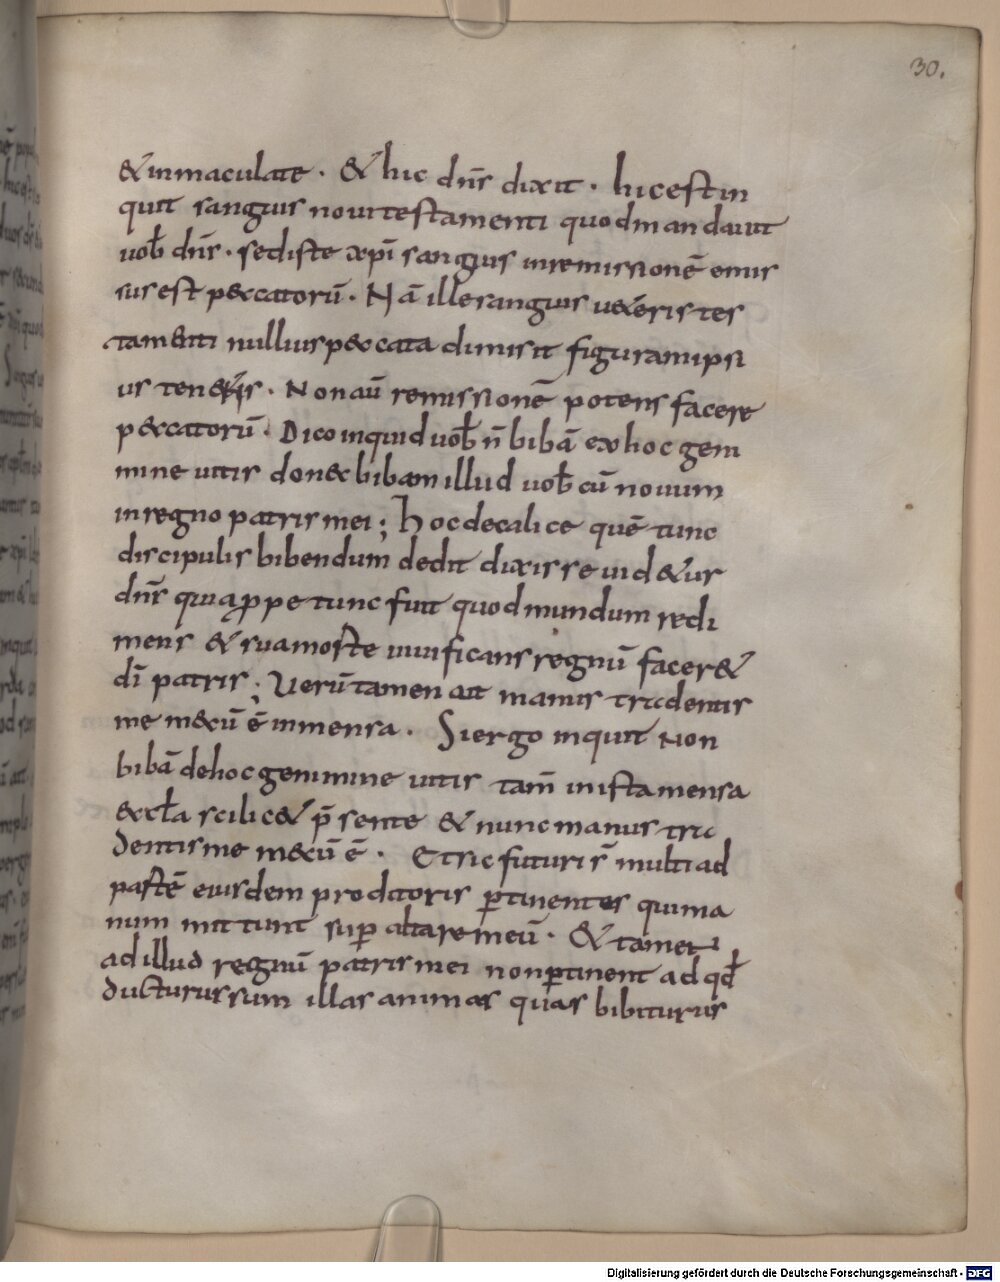 30.
& inmaculate · & hic dn̄s dixit · hic est in
quit sanguis noui testamenti quod mandauit
uob̄ dn̄s · sed iste xp̄i sanguis in remissionē emis
sus est p&catorū · Nā ille sanguis u&eris tes
tam&nti nullius p&cata dimisit figuram ipsi
us ten&is · Non aū remissionē potens facere
p&catorū · Dico inquid uob̄ n̄ bibā ex hoc gem
mine uitis don&c bibam illud uob̄ cū nouum
in regno patris mei ; hoc de calice quē tunc
discipulis bibendum dedit dixisse uid&ur
dn̄s quia ppe tunc fuit quod mundum redi
mens & sua morte uiuificans regnū facer&
dī patris ; Uerūtamen ait manus tradentis
me mecū ē in mensa · Si ergo inquit Non
bibā de hoc gemmine uitis tam̄ in ista mensa
eccl̄a scilic& p̄sente & nunc manus tra
dentis me mecū ē · Et sic futuri s̄ multi ad
partē eiusdem proditoris ptinentes qui ma
num mittunt sup altare meū · & tamen
ad illud regnū patris mei non ptinent ad qd̄
ducturus sum illas animas quas bibiturus
Digitalisierung gefördert durch die Deutsche Forschungsgemeinschaft - DFG